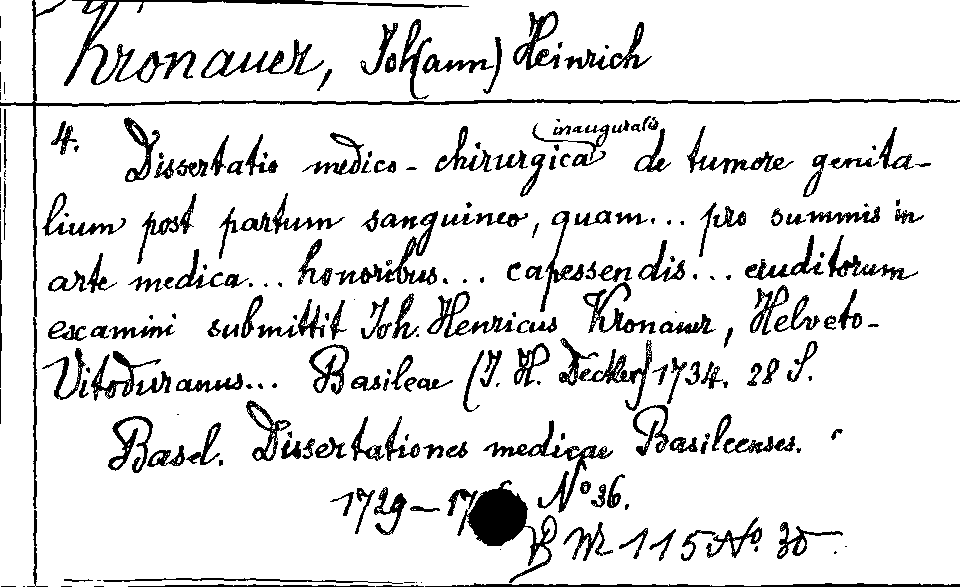 Kronauer, Joh(ann) Heinrich
4. Dissertatio medico-chirurgica inauguralis de tumore genita-
lium post partum sanguineo, quam... pro summis in
arte medica... honoribus... capessendis... eruditorum
examini submittit Joh. Henricus Kronauer, Helveto-
Vitoduranus... Basileae (J. H. Decker) 1734. 28 S.
Basel. Dissertationes medicae Basileenses.
1729-17 No 36.
115 No. 30